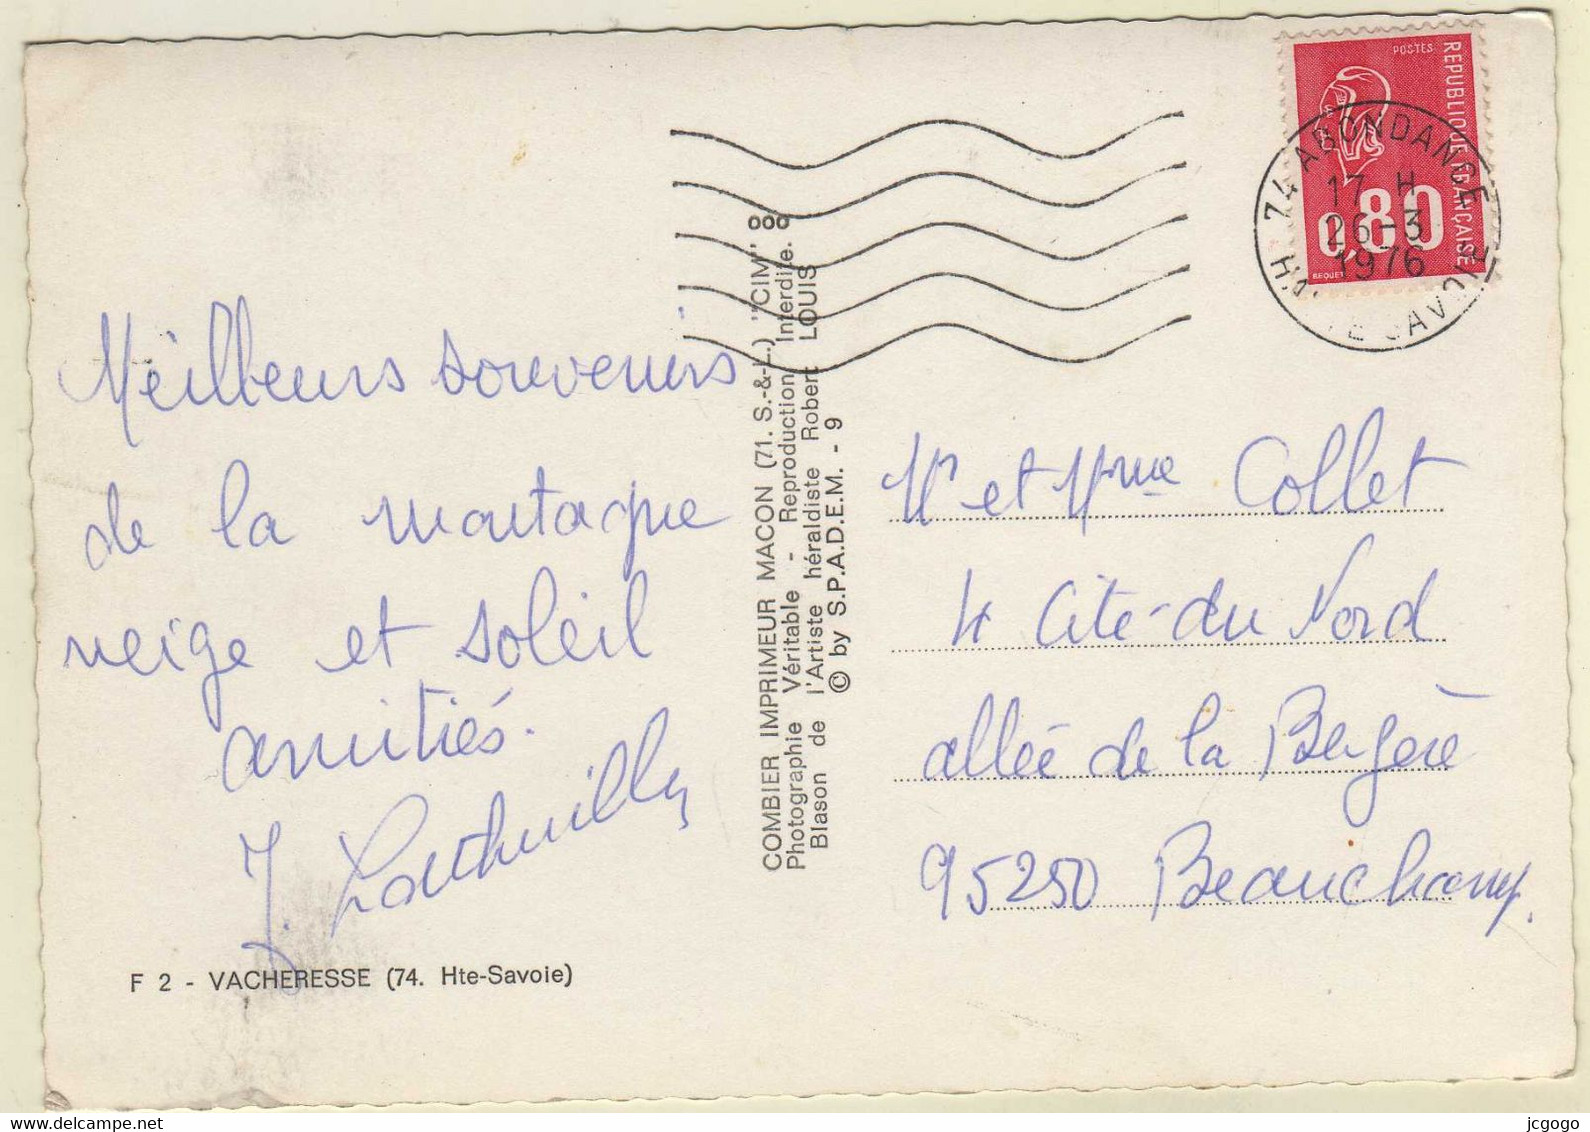 Meilleurs souvenirs
de la montagne
neige et soleil
amitiés.
J. Lathuilly
F 2 - VACHERESSE (74. Hte-Savoie)
COMBIER IMPRIMEUR MACON (71. S.-&-L.) "CIM"
Photographie Véritable - Reproduction Interdite.
Blason de l'Artiste héraldiste Robert LOUIS
© by S.P.A.D.E.M. - 9
POSTES
REPUBLIQUE FRANÇAISE
0,80
BEQUET
74 ABONDANCE
17 H
26-3
1976
HTE SAVOIE
Mr et Mme Collet
4 Cité-du Nord
allée de la Bergère
95250 Beauchamp.
jcgogo